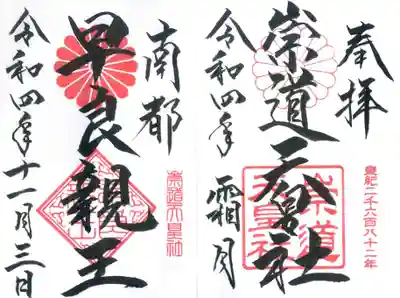 奉拝
皇紀二千六百八十二年
崇道天皇社
崇道天皇社
令和四年 霜月
南都
崇道天皇社
早良親王
令和四年十一月三日